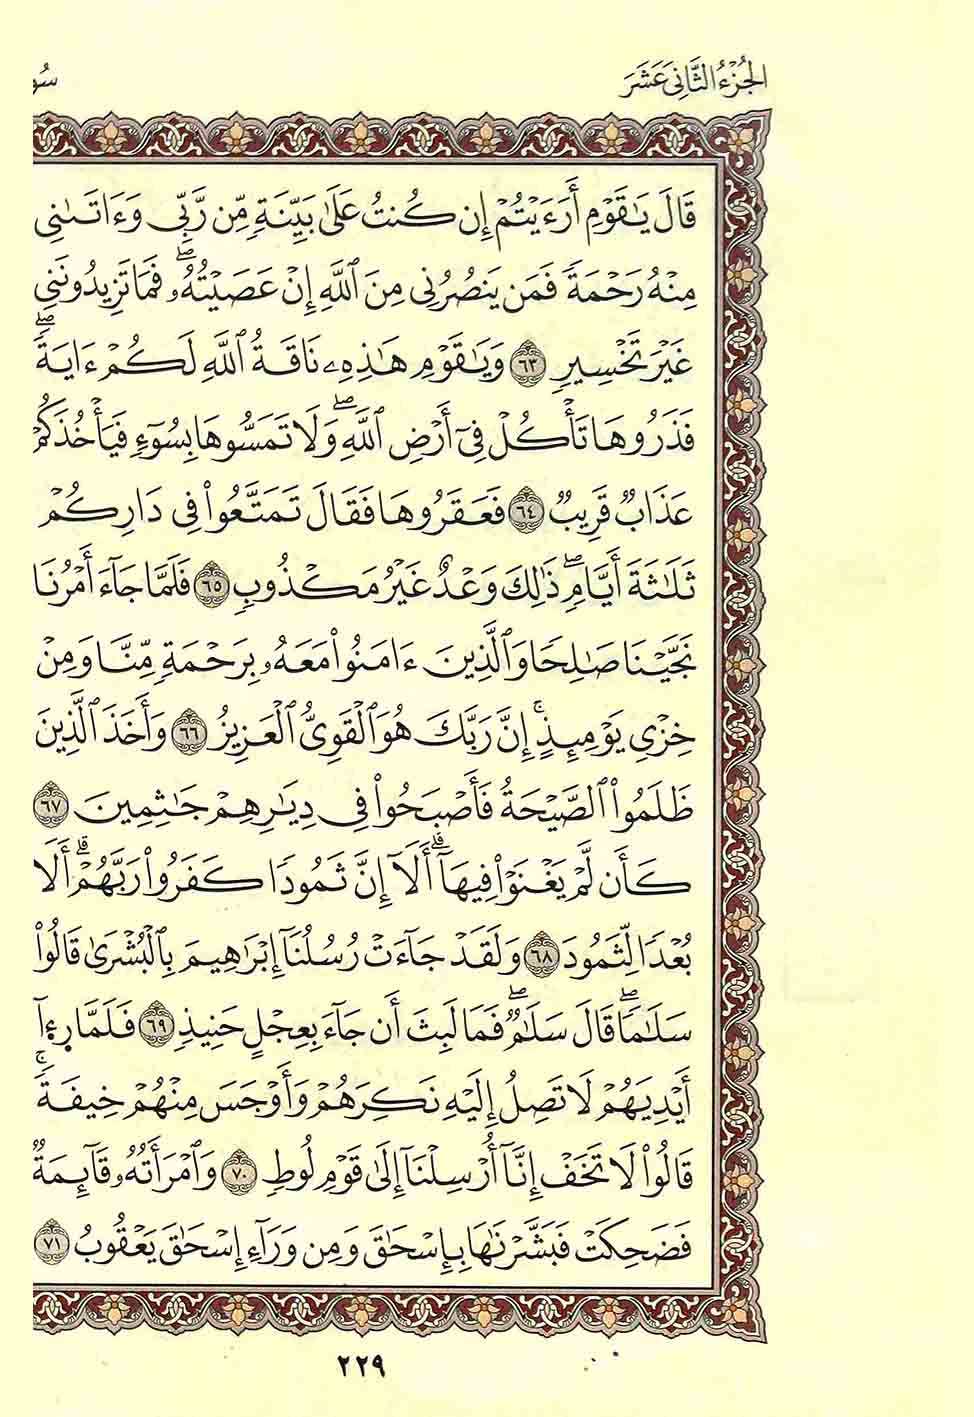 الجُزْءُ الثَّانِي عَشَرَ
قَالَ يَٰقَوْمِ أَرَءَيْتُمْ إِن كُنتُ عَلَىٰ بَيِّنَةٍ مِّن رَّبِّى وَءَاتَىٰنِى
مِنْهُ رَحْمَةً فَمَن يَنصُرُنِى مِنَ ٱللَّهِ إِنْ عَصَيْتُهُۥۖ فَمَا تَزِيدُونَنِى
غَيْرَ تَخْسِيرٍ ٦٣ وَيَٰقَوْمِ هَٰذِهِۦ نَاقَةُ ٱللَّهِ لَكُمْ ءَايَةًۖ
فَذَرُوهَا تَأْكُلْ فِىٓ أَرْضِ ٱللَّهِۖ وَلَا تَمَسُّوهَا بِسُوٓءٍ فَيَأْخُذَكُمْ
عَذَابٌ قَرِيبٌ ٦٤ فَعَقَرُوهَا فَقَالَ تَمَتَّعُوا۟ فِى دَارِكُمْ
ثَلَٰثَةَ أَيَّامٍۖ ذَٰلِكَ وَعْدٌ غَيْرُ مَكْذُوبٍ ٦٥ فَلَمَّا جَآءَ أَمْرُنَا
نَجَّيْنَا صَٰلِحًا وَٱلَّذِينَ ءَامَنُوا۟ مَعَهُۥ بِرَحْمَةٍ مِّنَّا وَمِنْ
خِزْىِ يَوْمِئِذٍۚ إِنَّ رَبَّكَ هُوَ ٱلْقَوِىُّ ٱلْعَزِيزُ ٦٦ وَأَخَذَ ٱلَّذِينَ
ظَلَمُوا۟ ٱلصَّيْحَةُ فَأَصْبَحُوا۟ فِى دِيَٰرِهِمْ جَٰثِمِينَ ٦٧
كَأَن لَّمْ يَغْنَوْا۟ فِيهَآۗ أَلَآ إِنَّ ثَمُودَا۟ كَفَرُوا۟ رَبَّهُمْۗ أَلَا
بُعْدًا لِّثَمُودَ ٦٨ وَلَقَدْ جَآءَتْ رُسُلُنَآ إِبْرَٰهِيمَ بِٱلْبُشْرَىٰ قَالُوا۟
سَلَٰمًاۖ قَالَ سَلَٰمٌۖ فَمَا لَبِثَ أَن جَآءَ بِعِجْلٍ حَنِيذٍ ٦٩ فَلَمَّا رَءَآ
أَيْدِيَهُمْ لَا تَصِلُ إِلَيْهِ نَكِرَهُمْ وَأَوْجَسَ مِنْهُمْ خِيفَةًۚ
قَالُوا۟ لَا تَخَفْ إِنَّآ أُرْسِلْنَآ إِلَىٰ قَوْمِ لُوطٍ ٧٠ وَٱمْرَأَتُهُۥ قَآئِمَةٌ
فَضَحِكَتْ فَبَشَّرْنَٰهَا بِإِسْحَٰقَ وَمِن وَرَآءِ إِسْحَٰقَ يَعْقُوبُ ٧١
٢٢٩